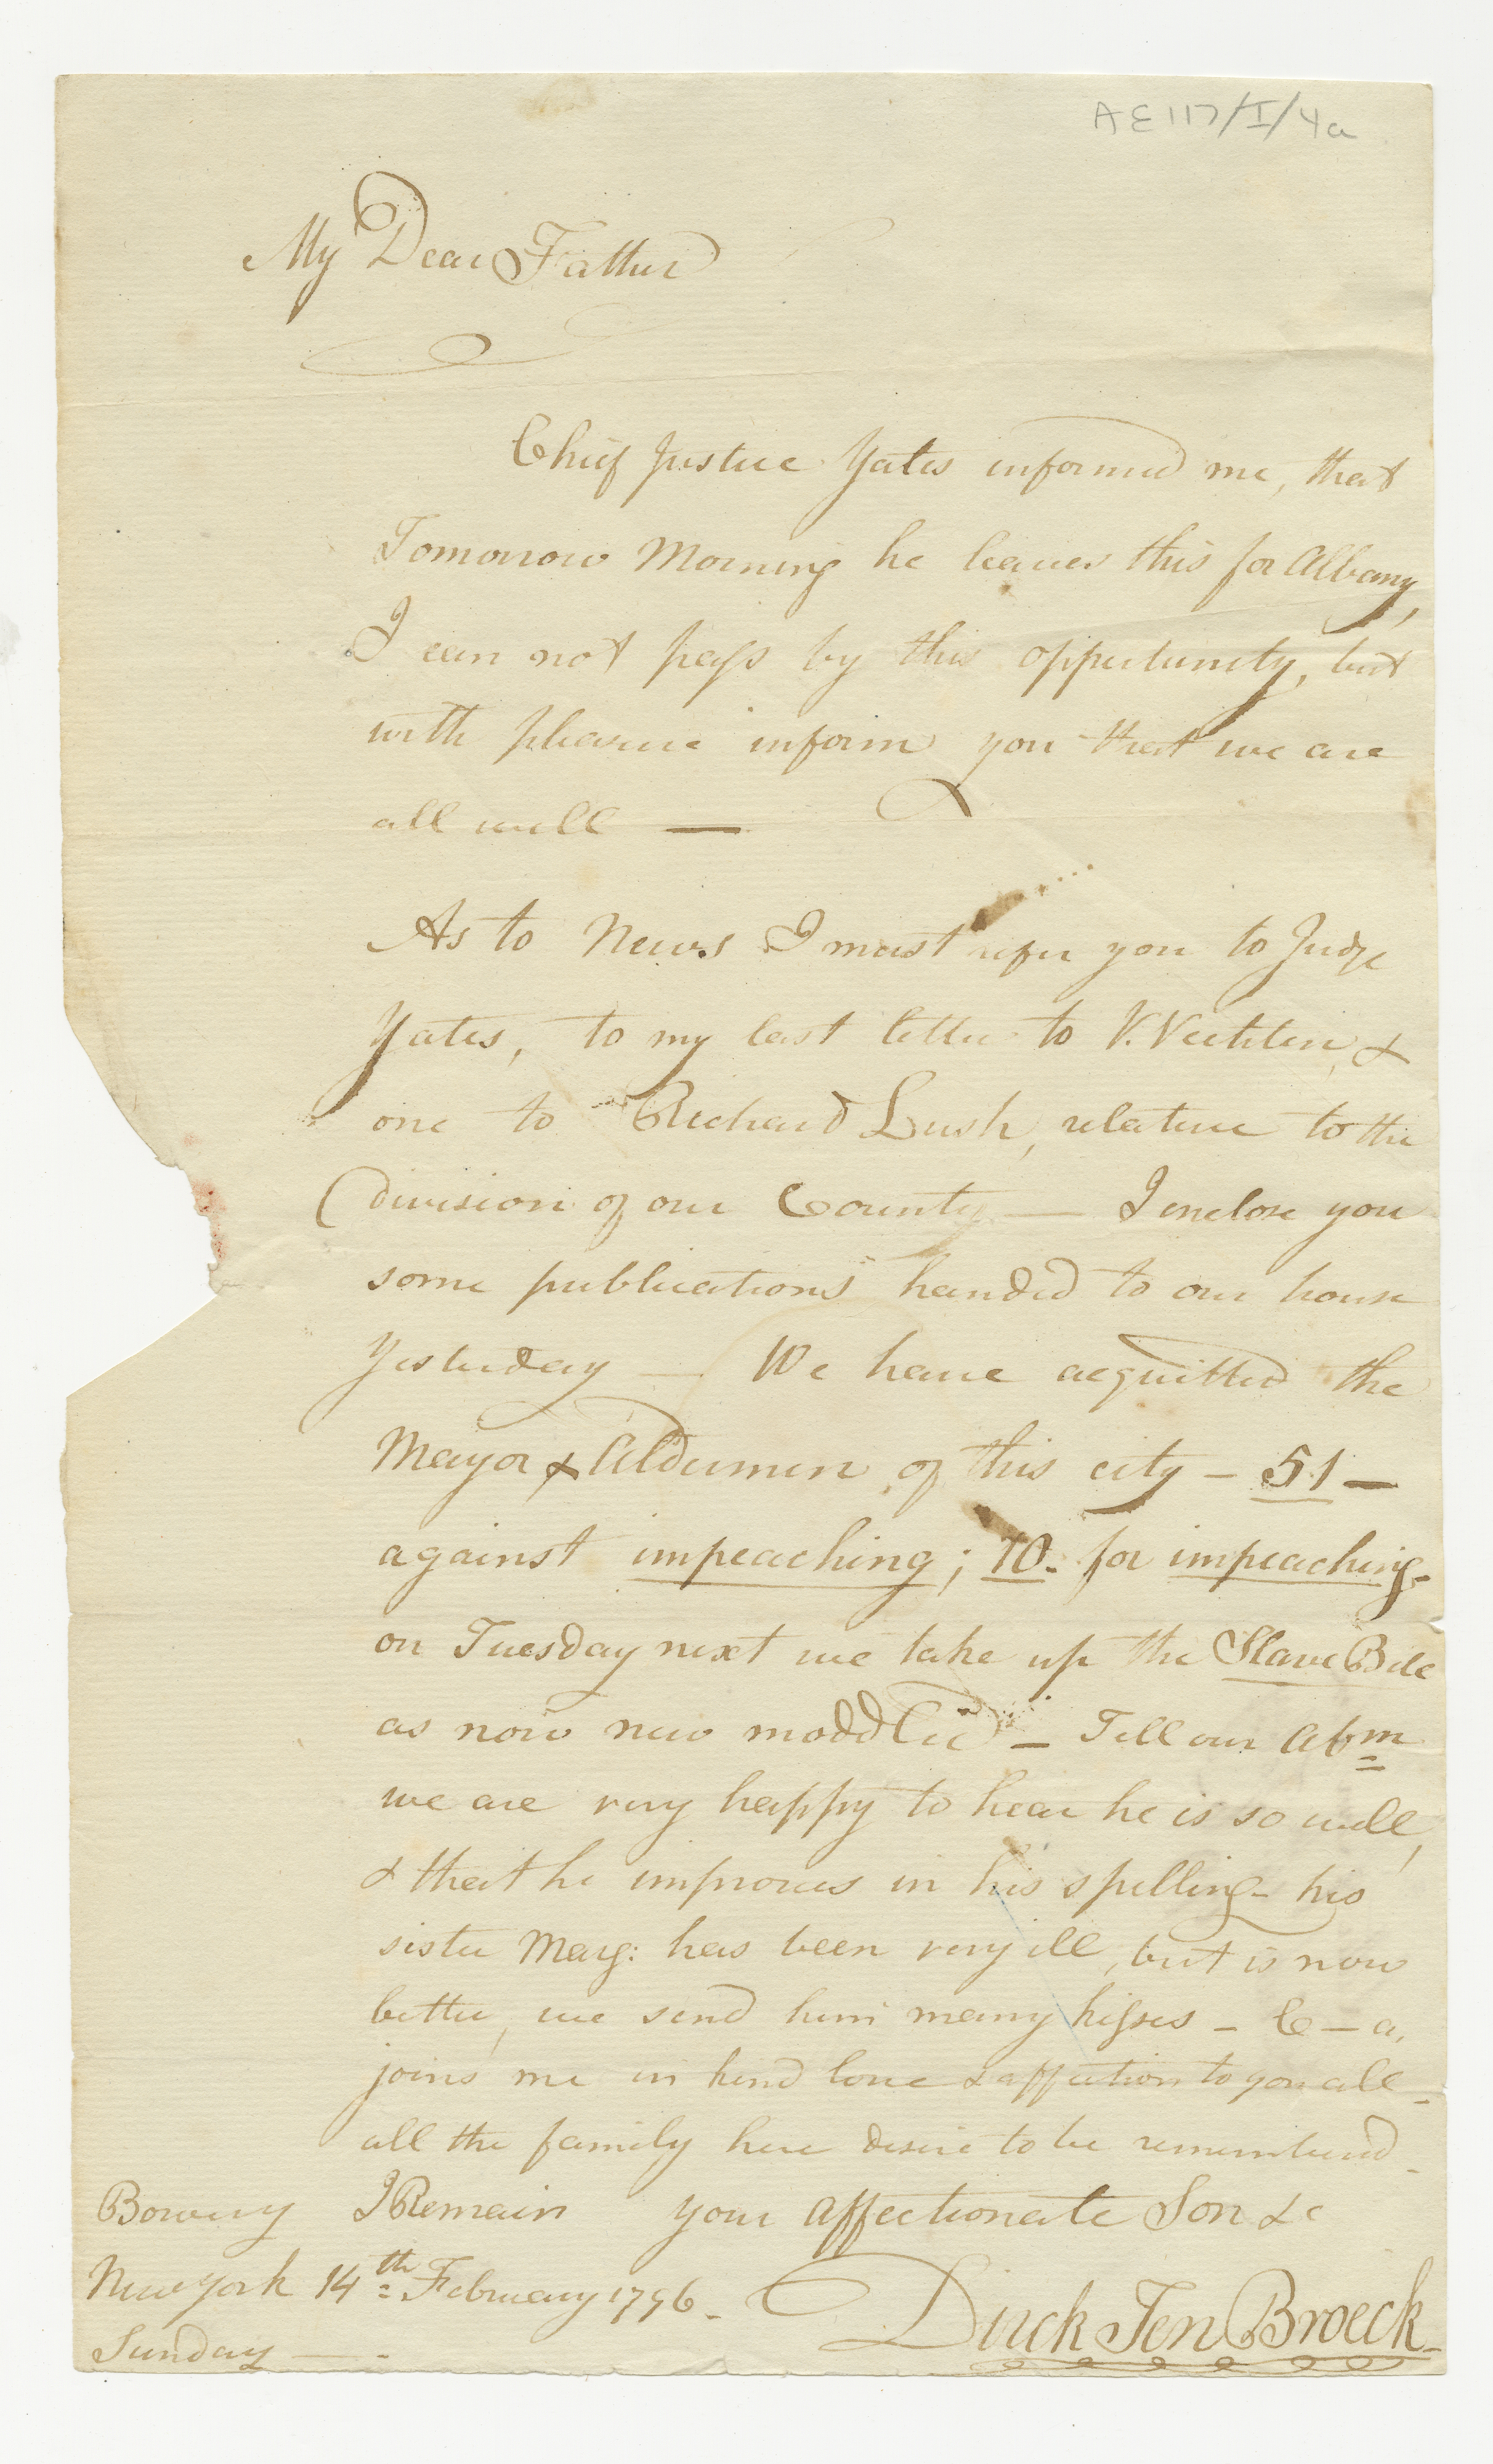 AE117/I/4a
My Dear Father
Chief Justice Yates informed me, that
Tomorrow Morning he leaves this for Albany,
I can not pass by this oppertunity, but
with pleasure inform you that we are
all well —
As to News I must refer you to Judge
Yates, to my last letter to V. Vechten, &
one to Richard Lush, relative to the
division of our County — I enclose you
some publications handed to our house
Yesterday — We have acquitted the
Mayor & Aldermen of this city – 51 –
against impeaching; 10. for impeaching –
on Tuesday next we take up the Slave Bill
as now new moddlied – Tell our Abm
we are very happy to hear he is so well,
& that he improves in his spelling – his
sister Marg: has been very ill, but is now
better, we send him many kisses – C – a,
joins me in kind love & affection to you all –
all the family here desire to be rememberd –
Bowery I Remain your affectionate Son &c
New York 14th February 1796 –
Dirck Ten Broeck –
Sunday —